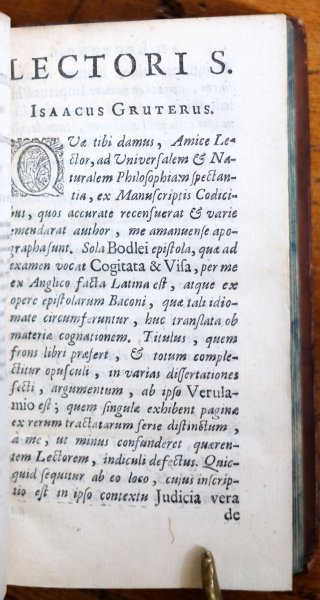 LECTORI S.
ISAACUS GRUTERUS.
QUæ tibi damus, Amice Le-
ctor, ad Universalem & Na-
turalem Philosophiam spectan-
tia, ex Manuscriptis Codici-
bus, quos accurate recensuerat & varie
emendarat author, me amanuense apo-
grapha sunt. Sola Bodlei epistola, quæ ad
examen vocat Cogitata & Visa, per me
ex Anglico facta Latina est, atque ex
opere epistolarum Baconi, quæ tali idio-
mate circumferuntur, huc translata ob
materiæ cognationem. Titulus, quem
frons libri præsert, & totum comple-
ctitur opusculi, in varias dissertationes
secti, argumentum, ab ipso Verula-
mio est; quem singulæ exhibent paginæ
ex rerum tractatarum serie distinctum,
à me, ut minus confunderet quæren-
tem Lectorem, indiculi defectus. Quic-
quid sequitur ab eo loco, cujus inscrip-
tio est in ipso contextu Judicia vera
de